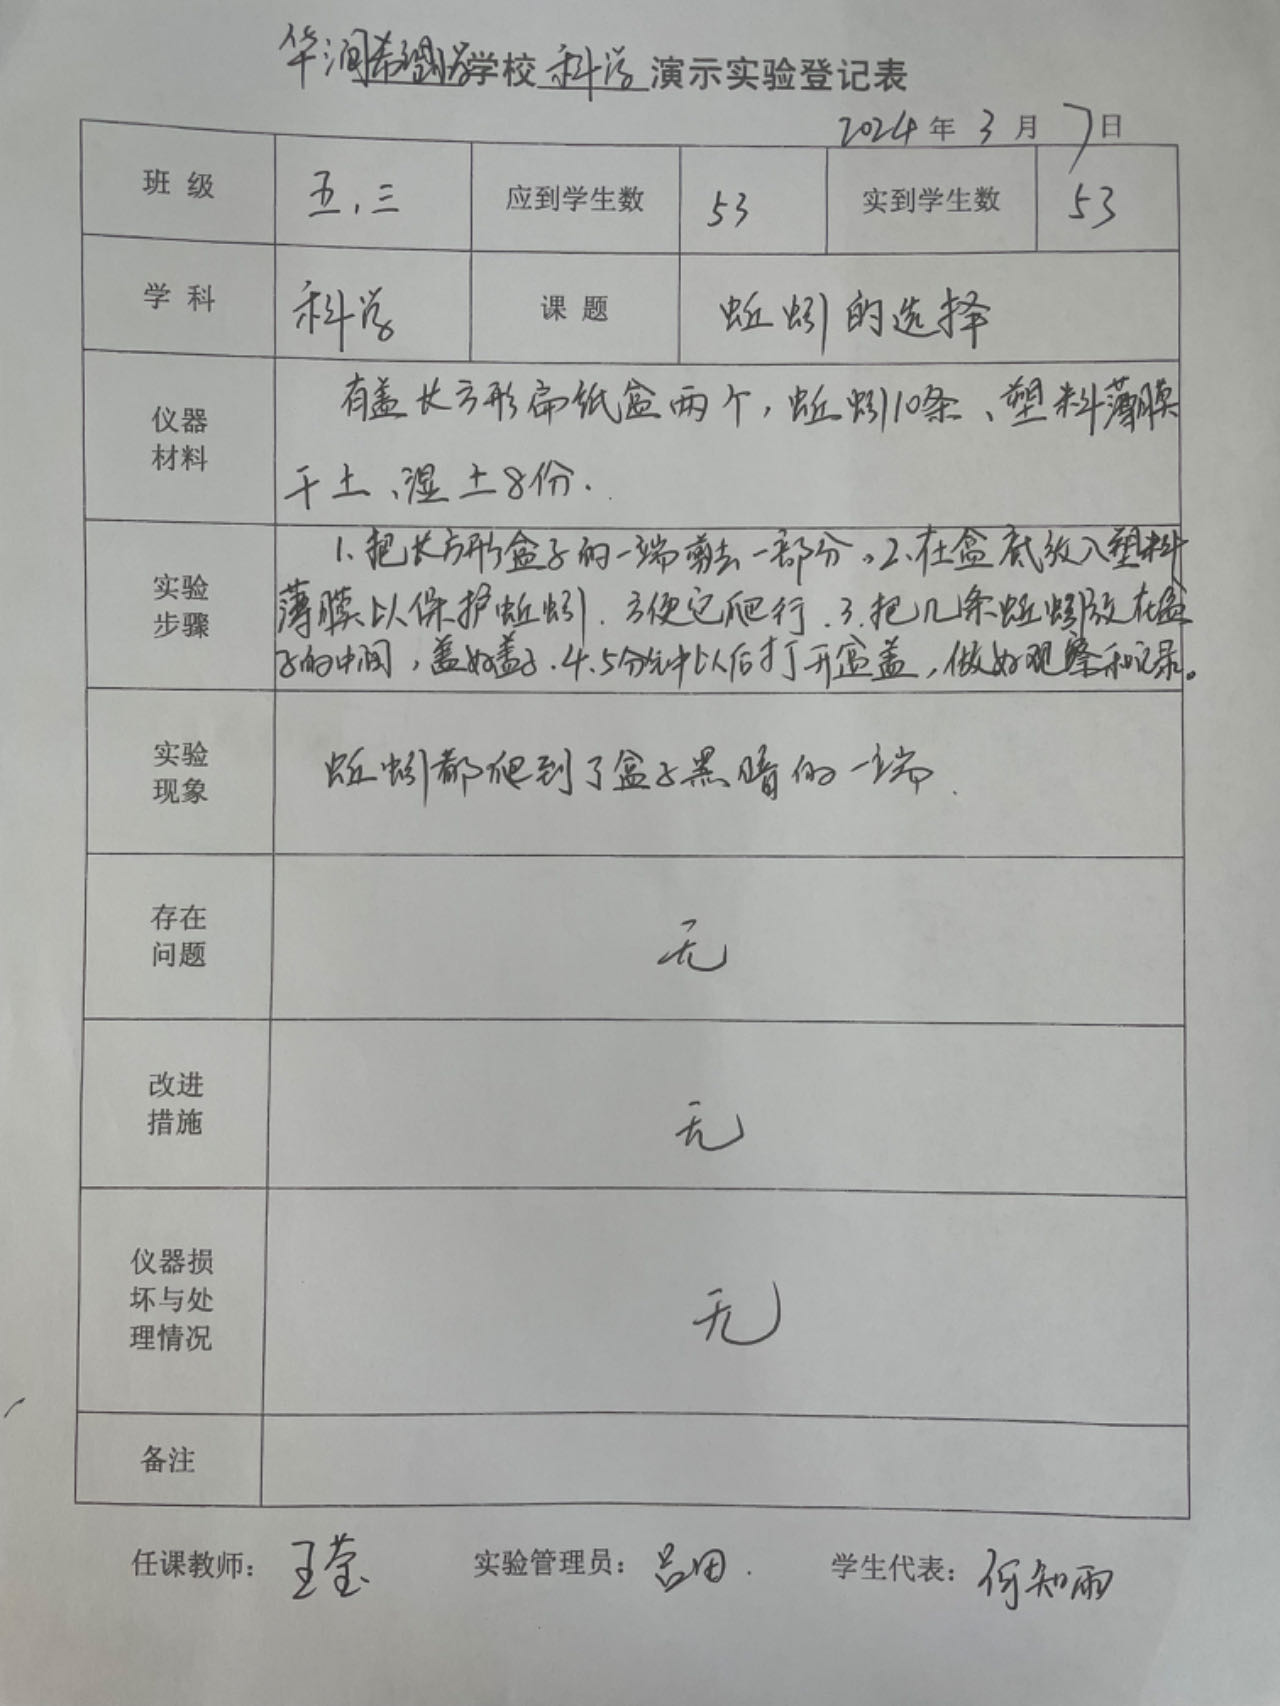 华润希望小学学校科学演示实验登记表
2024年3月7日
班级 五.三 应到学生数 53 实到学生数 53
学科 科学 课题 蚯蚓的选择
仪器材料 有盖长方形扁纸盒两个,蚯蚓10条、塑料薄膜
干土、湿土8份.
实验步骤 1.把长方形盒子的一端剪去一部分。2.在盒底放入塑料
薄膜以保护蚯蚓.方便它爬行.3.把几条蚯蚓放在盒
子的中间,盖好盖子.4.5分钟以后打开盒盖,做好观察和记录。
实验现象 蚯蚓都爬到了盒子黑暗的一端.
存在问题 无
改进措施 无
仪器损坏与处理情况 无
备注
任课教师:王莹 实验管理员:吕田. 学生代表:何知雨